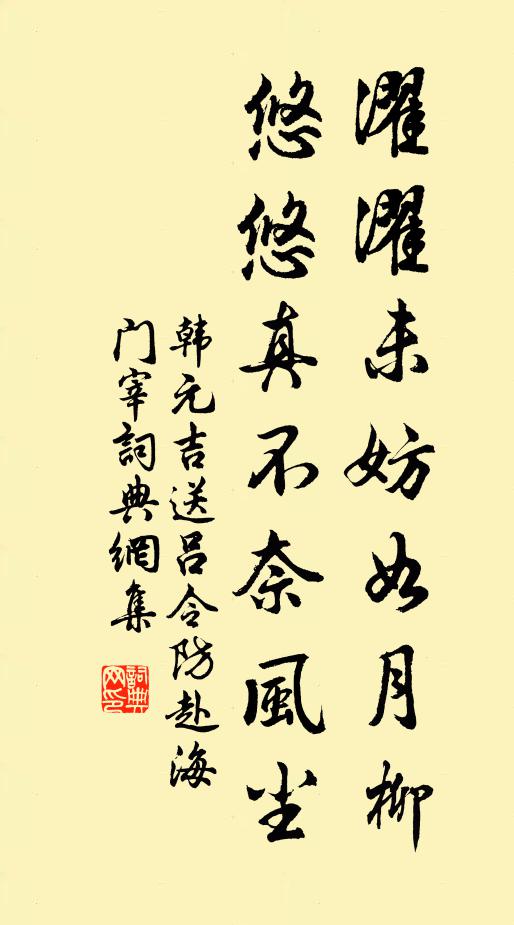 濯濯未妨如月柳
悠悠真不奈風尘
韩元吉送吕令防赴海
门宰詞典網集
詞典网印